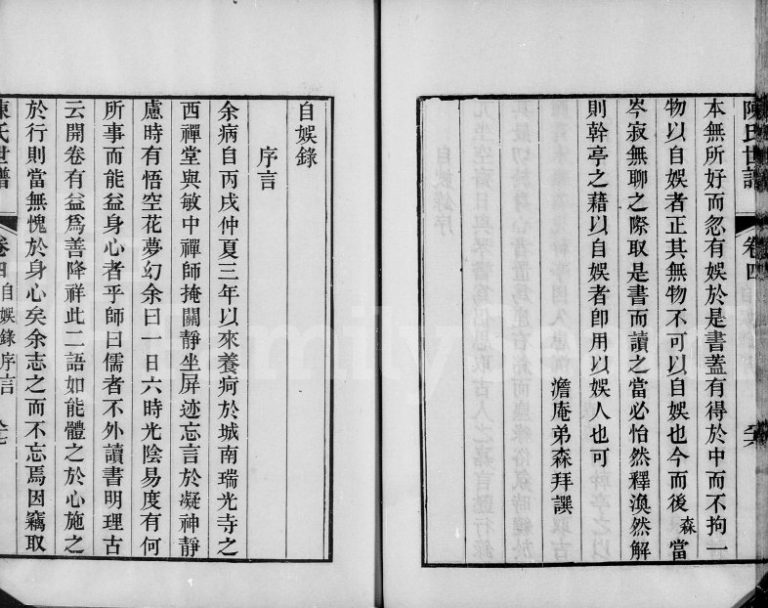 陳氏世譜 卷四 六六
本無所好而忽有娛於是書蓋有得於中而不拘一
物以自娛者正其無物不可以自娛也今而後森當
岑寂無聊之際取是書而讀之當必怡然釋渙然解
則幹亭之藉以自娛者卽用以娛人也可
澹庵弟森拜譔
自娛錄
序言
余病自丙戌仲夏三年以來養疴於城南瑞光寺之
西禪堂與敏中禪師掩關靜坐屏迹忘言於凝神靜
慮時有悟空花夢幻余曰一日六時光陰易度有何
所事而能益身心者乎師曰儒者不外讀書明理古
云開卷有益爲善降祥此二語如能體之於心施之
於行則當無愧於身心矣余志之而不忘焉因竊取
陳氏世譜 卷四 自娛錄序言 六七